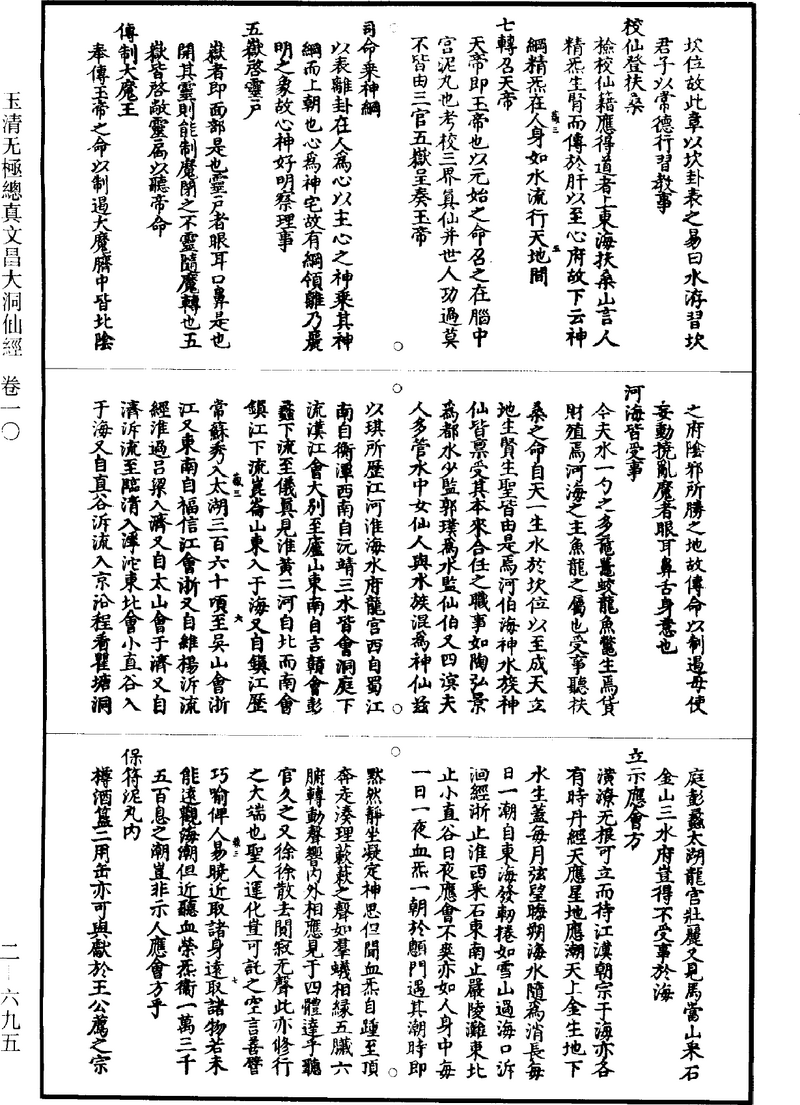 坎位故此章以坎卦表之易曰水洊習坎
君子以常德行習教事
校仙登扶桑
檢校仙籍應得道者上東海扶桑山言人
精炁生腎而傳於肝以至心府故下云神
綱精炁在人身如水流行天地間
七轉召天帝
天帝即玉帝也以元始之命召之在腦中
宮泥丸也考校三界真仙并世人功過莫
不皆由三官五嶽呈奏玉帝
司命乘神綱
以表離卦在人為心以主心之神乘其神
綱而上朝也心為神宅故有綱領離乃麗
明之象故心神好明察理事
五嶽啓靈戶
嶽者即面部是也靈戶者眼耳口鼻是也
開其靈則能制魔閉之不靈隨魔轉也五
嶽皆啓敵靈扃以聽帝命
傳制大魔王
奉傳玉帝之命以制遏大魔臍中皆北陰
之府陰邪所勝之地故傳命以制遏毋使
妄動撓亂魔者眼耳鼻舌身意也
河海皆受事
今夫水一勺之多黿鼉蛟龍魚鱉生焉貨
財殖焉河海之主魚龍之屬也受事聽扶
桑之命自天一生水於坎位以至成天立
地生賢生聖皆由是焉河伯海神水族神
仙皆禀受其本來合任之職事如陶弘景
為都水少監郭璞為水監仙伯又四溟夫
人多管水中女仙人與水族混為神仙茲
以琪所歷江河淮海水府龍宮西自蜀江
南自衡潭西南自沅靖三水皆會洞庭下
流漢江會大別至廬山東南自吉贛會彭
蠡下流至儀真見淮黃二河自北而南會
鎮江下流崑崙山東入于海又自鎮江歷
常蘇秀入太湖三百六十項至吳山會浙
江又東南自福信江會浙又自維楊泝流
經淮過呂梁入濟又自太山會于濟又自
濟泝流至臨清入滹沱東北會小直谷入
于海又自直谷泝流入京沿程看瞿塘洞
庭彭蠡太湖龍宮壯麗又見馬當山采石
金山三水府豈得不受事於海
立示應會方
潢潦无根可立而待江漢朝宗于海亦各
有時丹經天應星地應潮天上金生地下
水生蓋每月弦望晦朔海水隨為消長每
日一潮自東海發軔捲如雪山過海口泝
洄經浙止淮西采石東南止嚴陵灘東北
止小直谷日夜應會不爽亦如人身中每
一日一夜血炁一朝於顖門遇其潮時即
黙然靜坐凝定神思但聞血炁自踵至頂
奔走湊理蔌蔌之聲如羣蟻相緣五臟六
腑轉動聲響內外相應見于四體達乎聽
官久之又徐徐散去閴寂无聲此亦修行
之大端也聖人運化豈可託之空言善譬
巧喻俾人易曉近取諸身遠取諸物若未
能遠觀海潮但近聽血榮炁衞一萬三千
五百息之潮豈非示人應會方乎
保符泥丸內
樽酒簋二用缶亦可與獻於王公薦之宗
玉清无極總真文昌大洞仙經 卷一〇
二―六九五